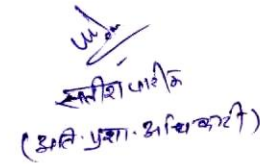 सतीश पारीक
(अति. प्रशा. अधिकारी)